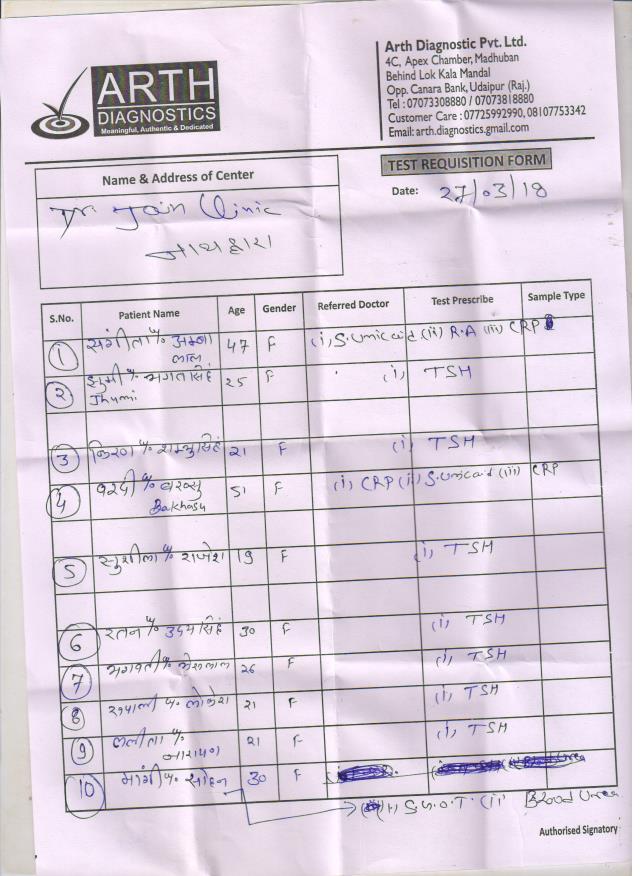 ARTH
DIAGNOSTICS
Meaningful, Authentic & Dedicated
Arth Diagnostic Pvt. Ltd.
4C, Apex Chamber, Madhuban
Behind Lok Kala Mandal
Opp. Canara Bank, Udaipur (Raj.)
Tel : 07073308880 / 07073818880
Customer Care : 07725992990, 08107753342
Email: arth.diagnostics.gmail.com
TEST REQUISITION FORM
Name & Address of Center
Date: 27/03/18
Dr. Jain Clinic
नाथद्वारा
S.No. Patient Name Age Gender Referred Doctor Test Prescribe Sample Type
1 संगीता w/o अम्बा लाल 47 F (i) S. Uric acid (ii) R.A (iii) CRP
2 झुमी w/o भगतसिंह 25 F (i) TSH
Jhumi
3 किरण w/o शम्भुसिंह 21 F (i) TSH
4 w/o 51 F (i) CRP (ii) S. Uric acid (iii) CRP
Bakhasu
5 सुशीला w/o राजेश 19 F (i) TSH
6 रतन w/o उदयसिंह 30 F (i) TSH
7 भगवती w/o 26 F (i) TSH
8 w/o लोकेश 21 F (i) TSH
9 ललीता w/o नारायण 21 F (i) TSH
10 मांगी w/o सोहन 30 F
(i) S.G.O.T. (ii) Blood Urea
Authorised Signatory